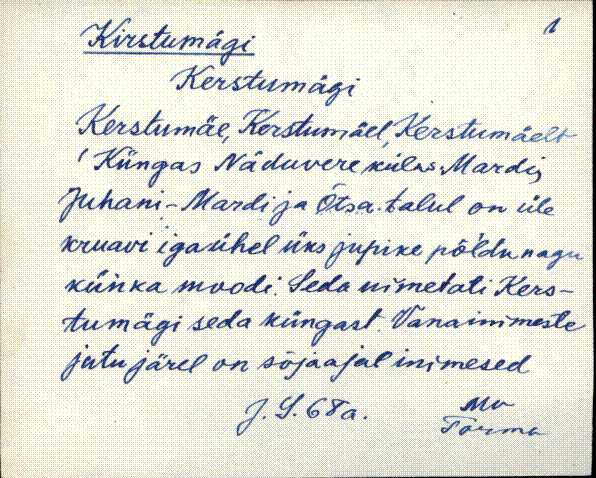 1
Kirstumägi
Kerstumägi
Kerstumäe, Kerstumäel, Kerstumäelt
Küngas Näduvere külas. Mardi,
Juhani-Mardi ja Õtsa talul on üle
kruavi igaühel üks jupike põldu nagu
künka moodi. Seda nimetati Kers-
tumägi seda küngast. Vanainimeste
jutu järel on sõjaajal inimesed
J. S. 68a.
Torma